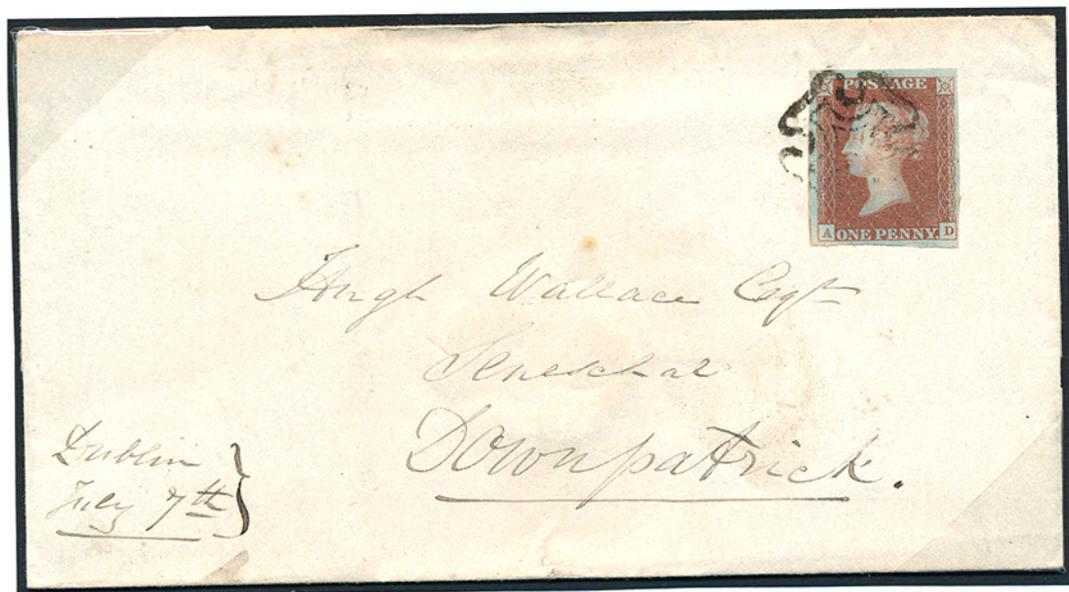 POSTAGE
A ONE PENNY. D
Hugh Wallace Esqre
Seneschal
Downpatrick.
Dublin
July 7th